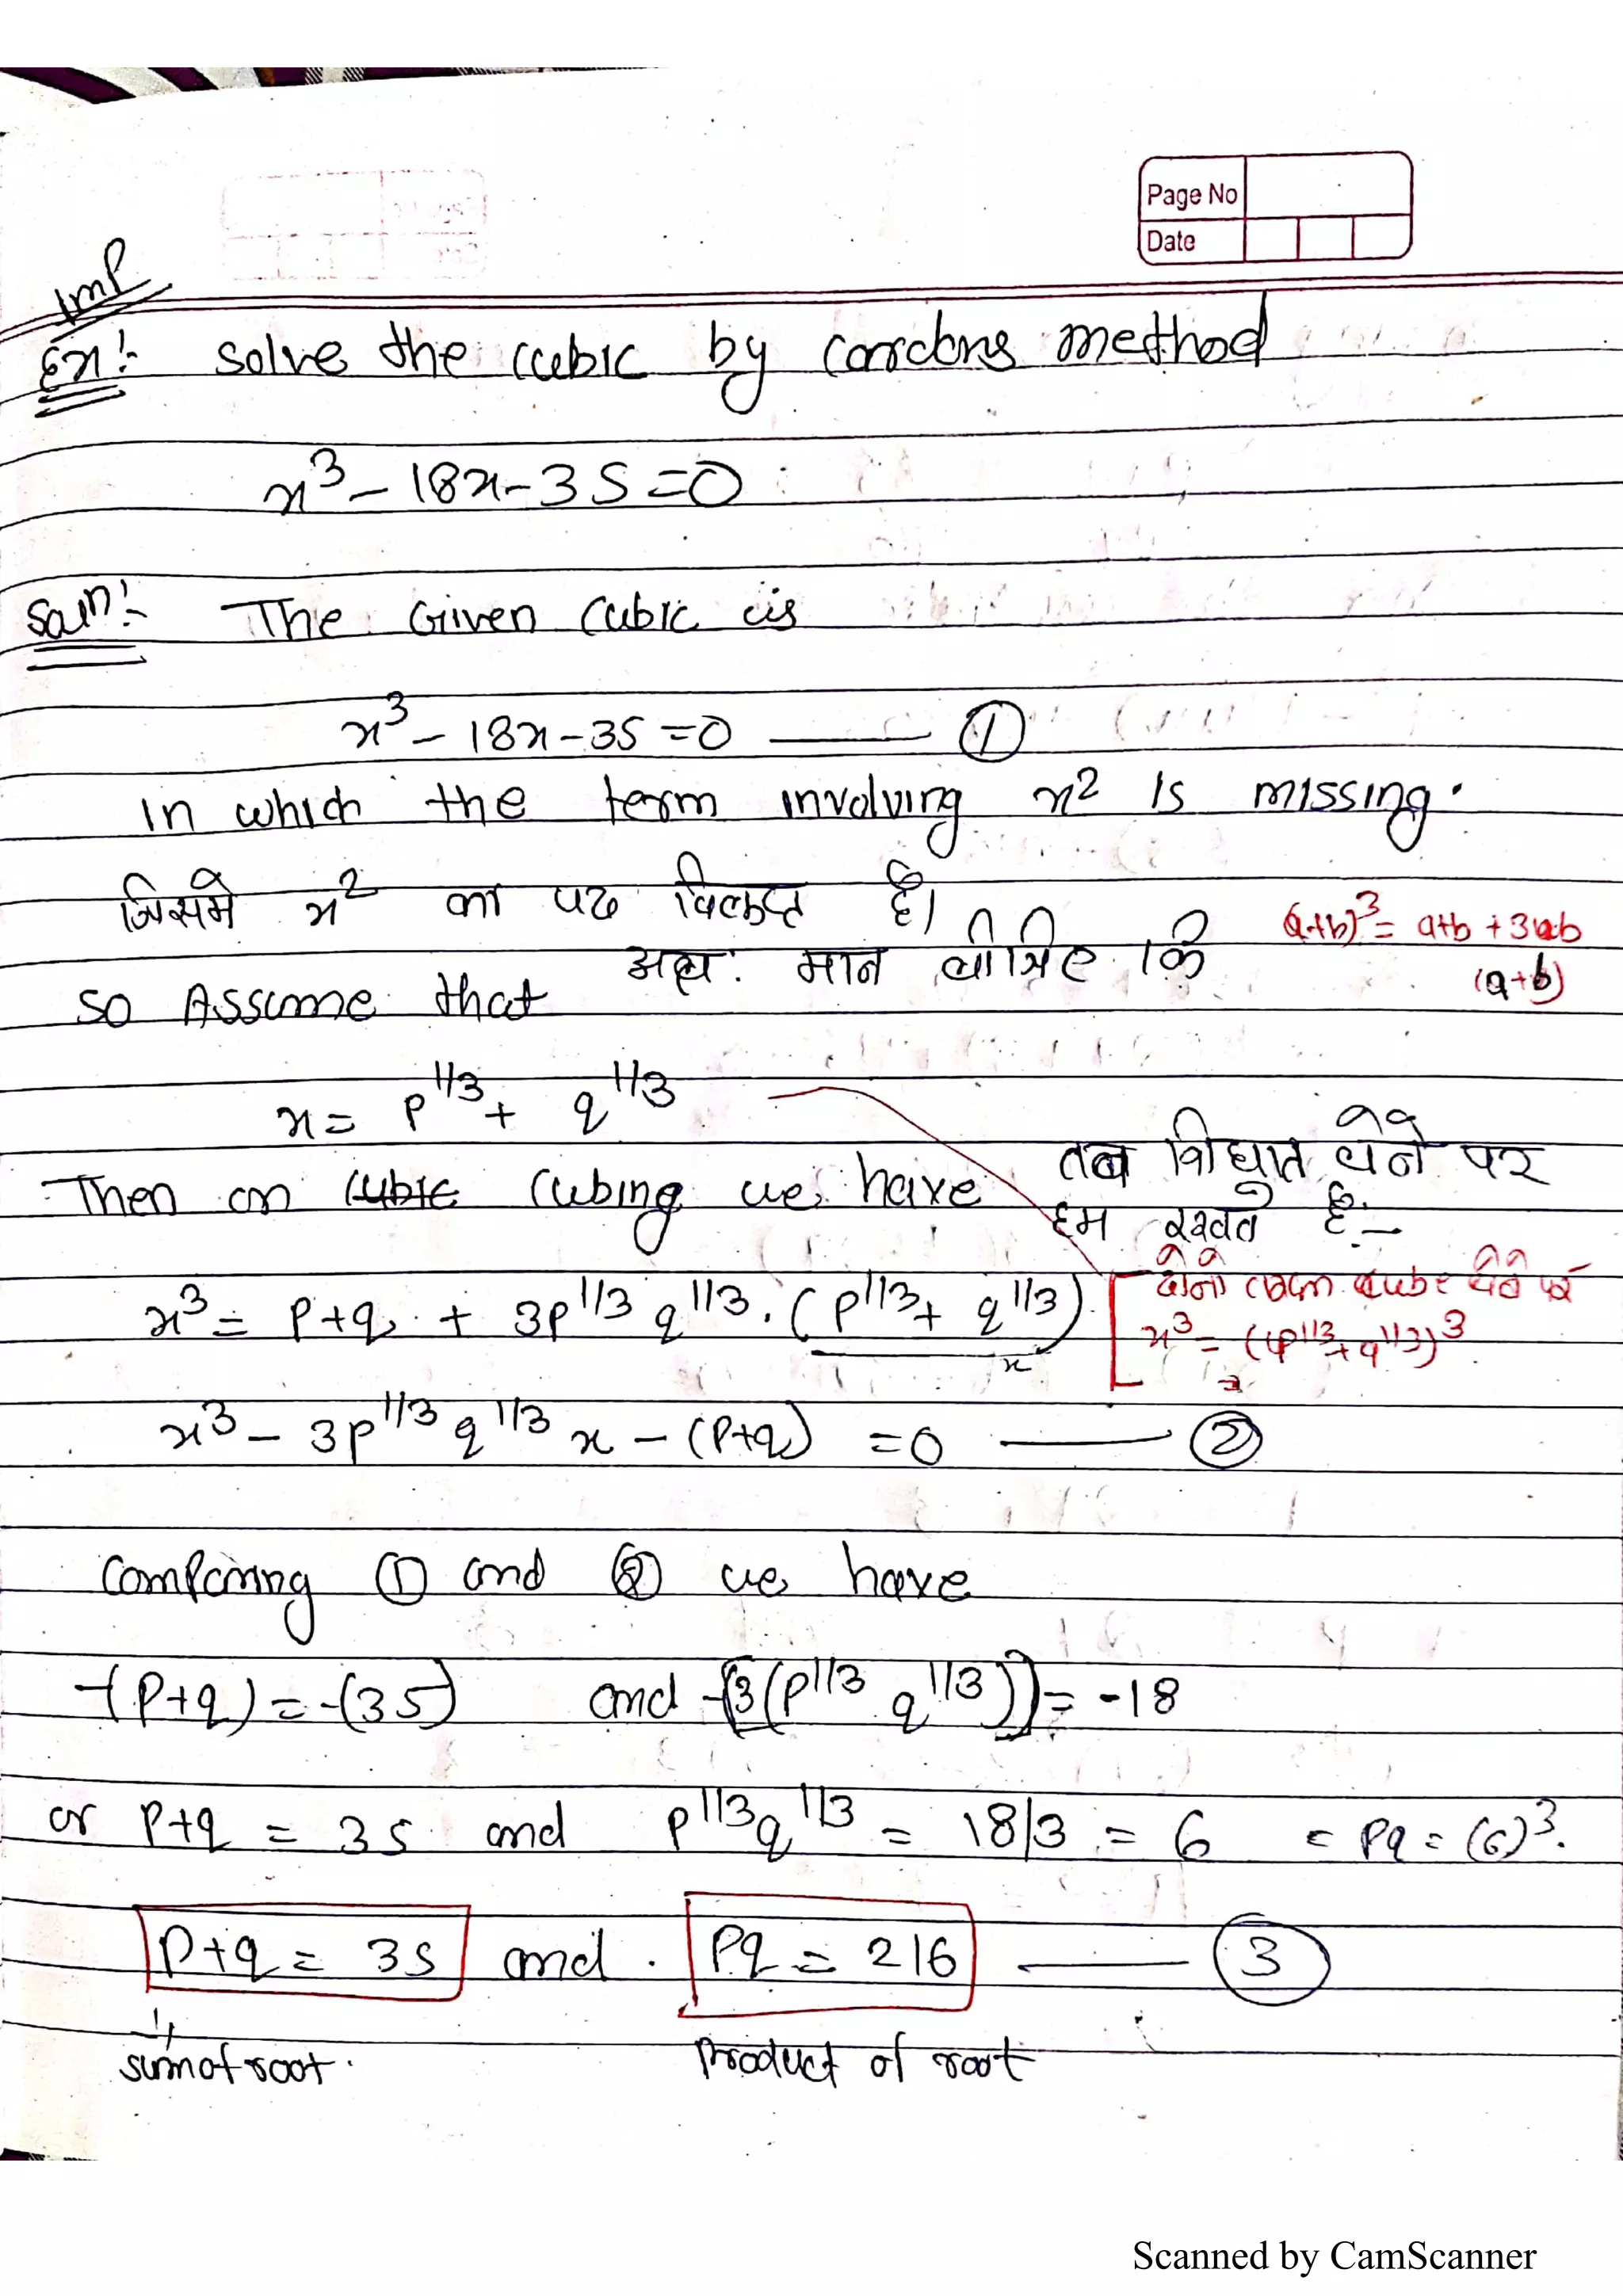 Page No
Date
Imp
Ex:- Solve the cubic by cardons method
x³ - 18x - 35 = 0
Soln:- The Given Cubic is
x³ - 18x - 35 = 0 —— ①
in which the term involving x² is missing.
जिसमे x² का पद विलुप्त है।
(a+b)³ = a+b + 3ab
(a+b)
अतः मान लीजिए कि
so Assume that
x = p^1/3 + q^1/3
Then on cubing we have तब त्रिघात लेने पर
हम रखते है:-
x³ = p+q + 3p^1/3 q^1/3 . (p^1/3 + q^1/3)
x
दोनो cube लेने पर
x³ = (p^1/3 + q^1/3)³
x³ - 3p^1/3 q^1/3 x - (p+q) = 0 —— ②
Comparing ① and ② we have
-(p+q) = -(35) and -[3(p^1/3 q^1/3)] = -18
or p+q = 35 and p^1/3 q^1/3 = 18/3 = 6 = pq = (6)³.
P+q = 35 and . Pq = 216 —— ③
sum of root. Product of root
Scanned by CamScanner